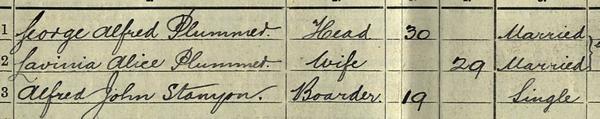 1 George Alfred Plummer. Head 30 Married
2 Lavinia Alice Plummer. Wife 29 Married
3 Alfred John Stanyon. Boarder. 19 Single